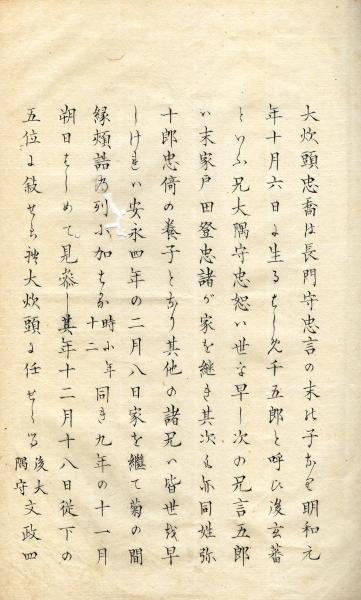 大炊頭忠喬は長門守忠言の末の子なり明和元
年十月六日に生るはしめ千五郎と呼ひ後玄蕃
といふ兄大隅守忠恕ハ世を早し次の兄言五郎
ハ末家戸田登忠諸が家を継き其次も亦同姓弥
十郎忠偫の養子となり其他の諸兄ハ皆世を早
しけれハ安永四年の二月八日家を継て菊の間
縁頬詰乃列に加はる 時に年
十二 同き九年の十一月
朔日はしめて見参し其年十二月十八日従下の
五位に叙せられ大炊頭に任せらる 後大
隅守 文政四